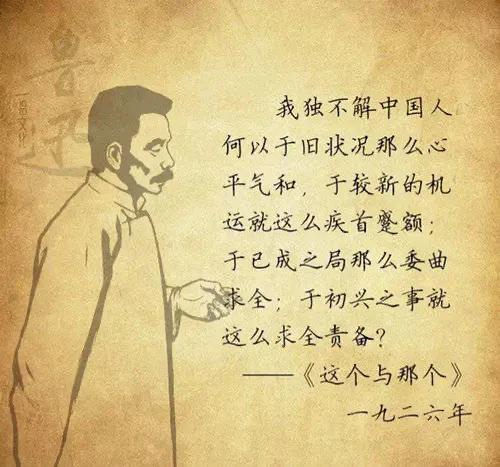 鲁迅
一诺文化
我独不解中国人
何以于旧状况那么心
平气和，于较新的机
运就这么疾首蹙额；
于已成之局那么委曲
求全；于初兴之事就
这么求全责备？
——《这个与那个》
一九二六年